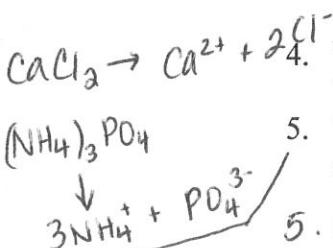 CaCl₂ → Ca²⁺ + 2Cl⁻
4.
(NH₄)₃PO₄
5.
↓
3NH₄⁺ + PO₄³⁻
5.